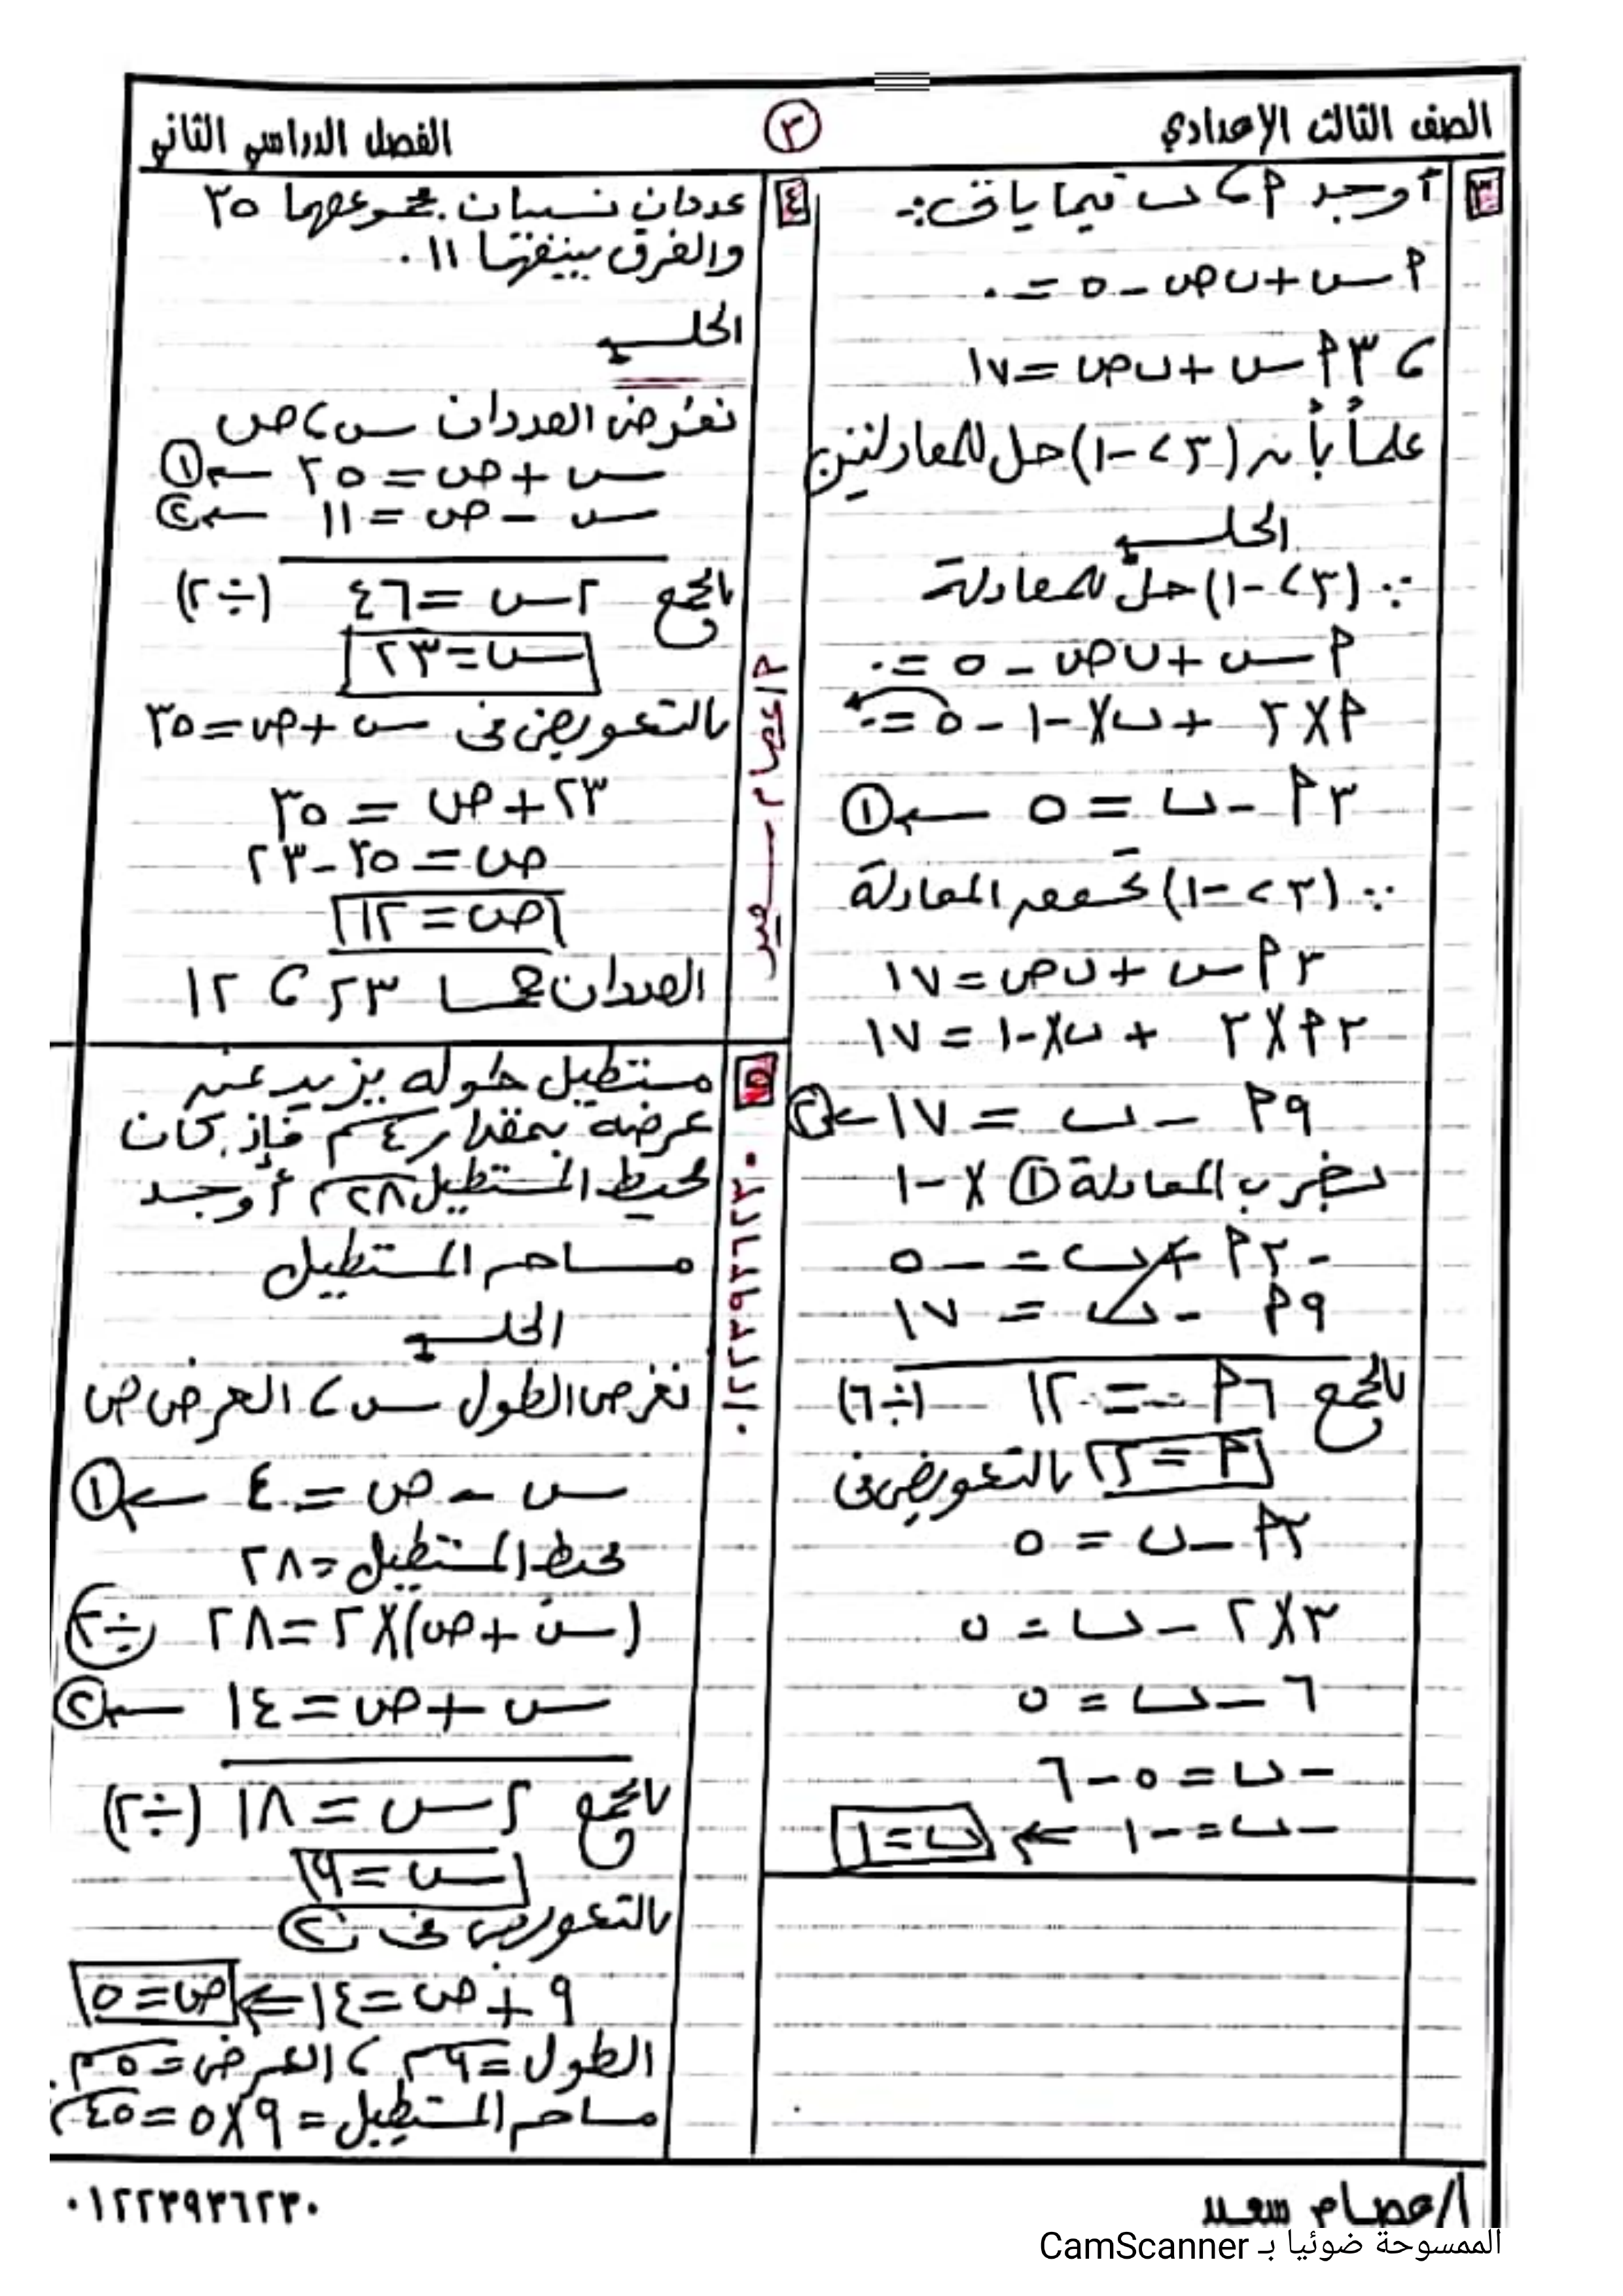 الصف الثالث الإعدادي
٣
الفصل الدراسي الثاني
٣
أوجد م ، ب فيما يأتى :-
م س + ب ص - ٥ = ٠
، ٣ م س + ب ص = ١٧
علماً بأن (٣ ، -١) حل للمعادلتين
الحل
∵ (٣ ، -١) حل للمعادلة
م س + ب ص - ٥ = ٠
م × ٣ + ب × -١ - ٥ = ٠
٣ م - ب = ٥ ← ①
∵ (٣ ، -١) تحقق المعادلة
٣ م س + ب ص = ١٧
٣ م × ٣ + ب × -١ = ١٧
٩ م - ب = ١٧ ← ②
بضرب المعادلة ① × -١
- ٣ م + ب = - ٥
٩ م - ب = ١٧
بالجمع ٦ م = ١٢ (÷ ٦)
م = ٢ بالتعويض فى
٣ م - ب = ٥
٣ × ٢ - ب = ٥
٦ - ب = ٥
- ب = ٥ - ٦
- ب = - ١ ← ب = ١
٤
عددان نسبيان مجموعهما ٣٥
والفرق بينهما ١١ .
الحل
نفرض العددان س ، ص
س + ص = ٣٥ ← ①
س - ص = ١١ ← ②
بالجمع ٢ س = ٤٦ (÷ ٢)
س = ٢٣
بالتعويض فى س + ص = ٣٥
٢٣ + ص = ٣٥
ص = ٣٥ - ٢٣
ص = ١٢
العددان هما ٢٣ ، ١٢
٥
مستطيل طوله يزيد عن
عرضه بمقدار ٤ سم فإذ كان
محيط المستطيل ٢٨ سم أوجد
مساحة المستطيل
الحل
نفرض الطول س ، العرض ص
س - ص = ٤ ← ①
محيط المستطيل = ٢٨
(س + ص) × ٢ = ٢٨ (÷ ٢)
س + ص = ١٤ ← ②
بالجمع ٢ س = ١٨ (÷ ٢)
س = ٩
بالتعويض فى ②
٩ + ص = ١٤ ⇐ ص = ٥
الطول = ٩ سم ، العرض = ٥ سم
مساحة المستطيل = ٩ × ٥ = ٤٥ سم
أ/عصام سعيد
٠١٢٢٣٩٣٦٢٣٠
أ/عصام سعيد
٠١٢٢٣٩٣٦٢٣٠
الممسوحة ضوئيا بـ CamScanner